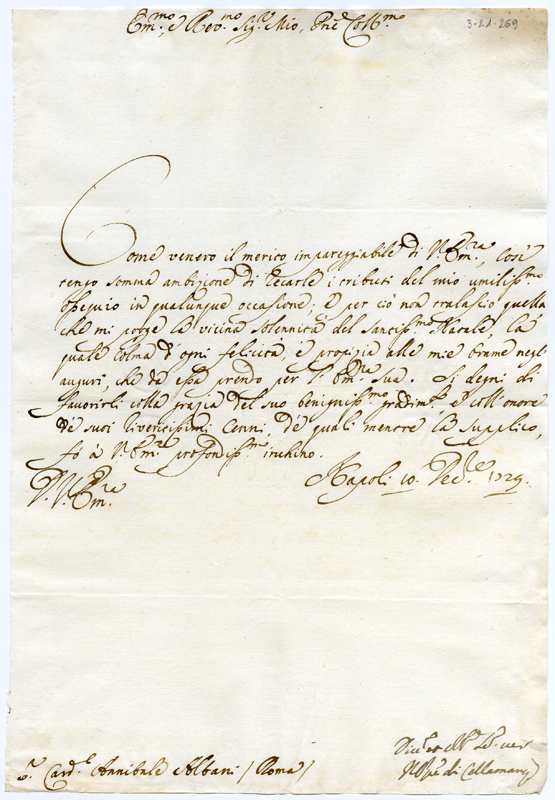 Em.mo, e Rev.mo Sig.r Mio, Pne Coll.mo
3-21-269
Come venero il merito impareggiabile di V. Em.ra, così
tengo somma ambizione di recarle i tributi del mio umiliss.mo
ossequio in qualunque occasione: e per ciò non tralascio quella
che mi porge la vicina solennità del Santiss.mo Natale, la
quale colma d'ogni felicità, e propizia alle mie brame negl'
auguri, che da essa prendo per l'Em.ra Sua. Si degni di
favorirli colla grazia del suo benigniss.mo gradim.to, e coll'onore
de' suoi de' quali mentre la supplico,
fò à V. Em.ra profondiss.mo inchino.
D. V. Em.ra
Napoli 10. Dec.re 1729.
S.r Card.l Annibale Albani (Roma)
di Cellamare